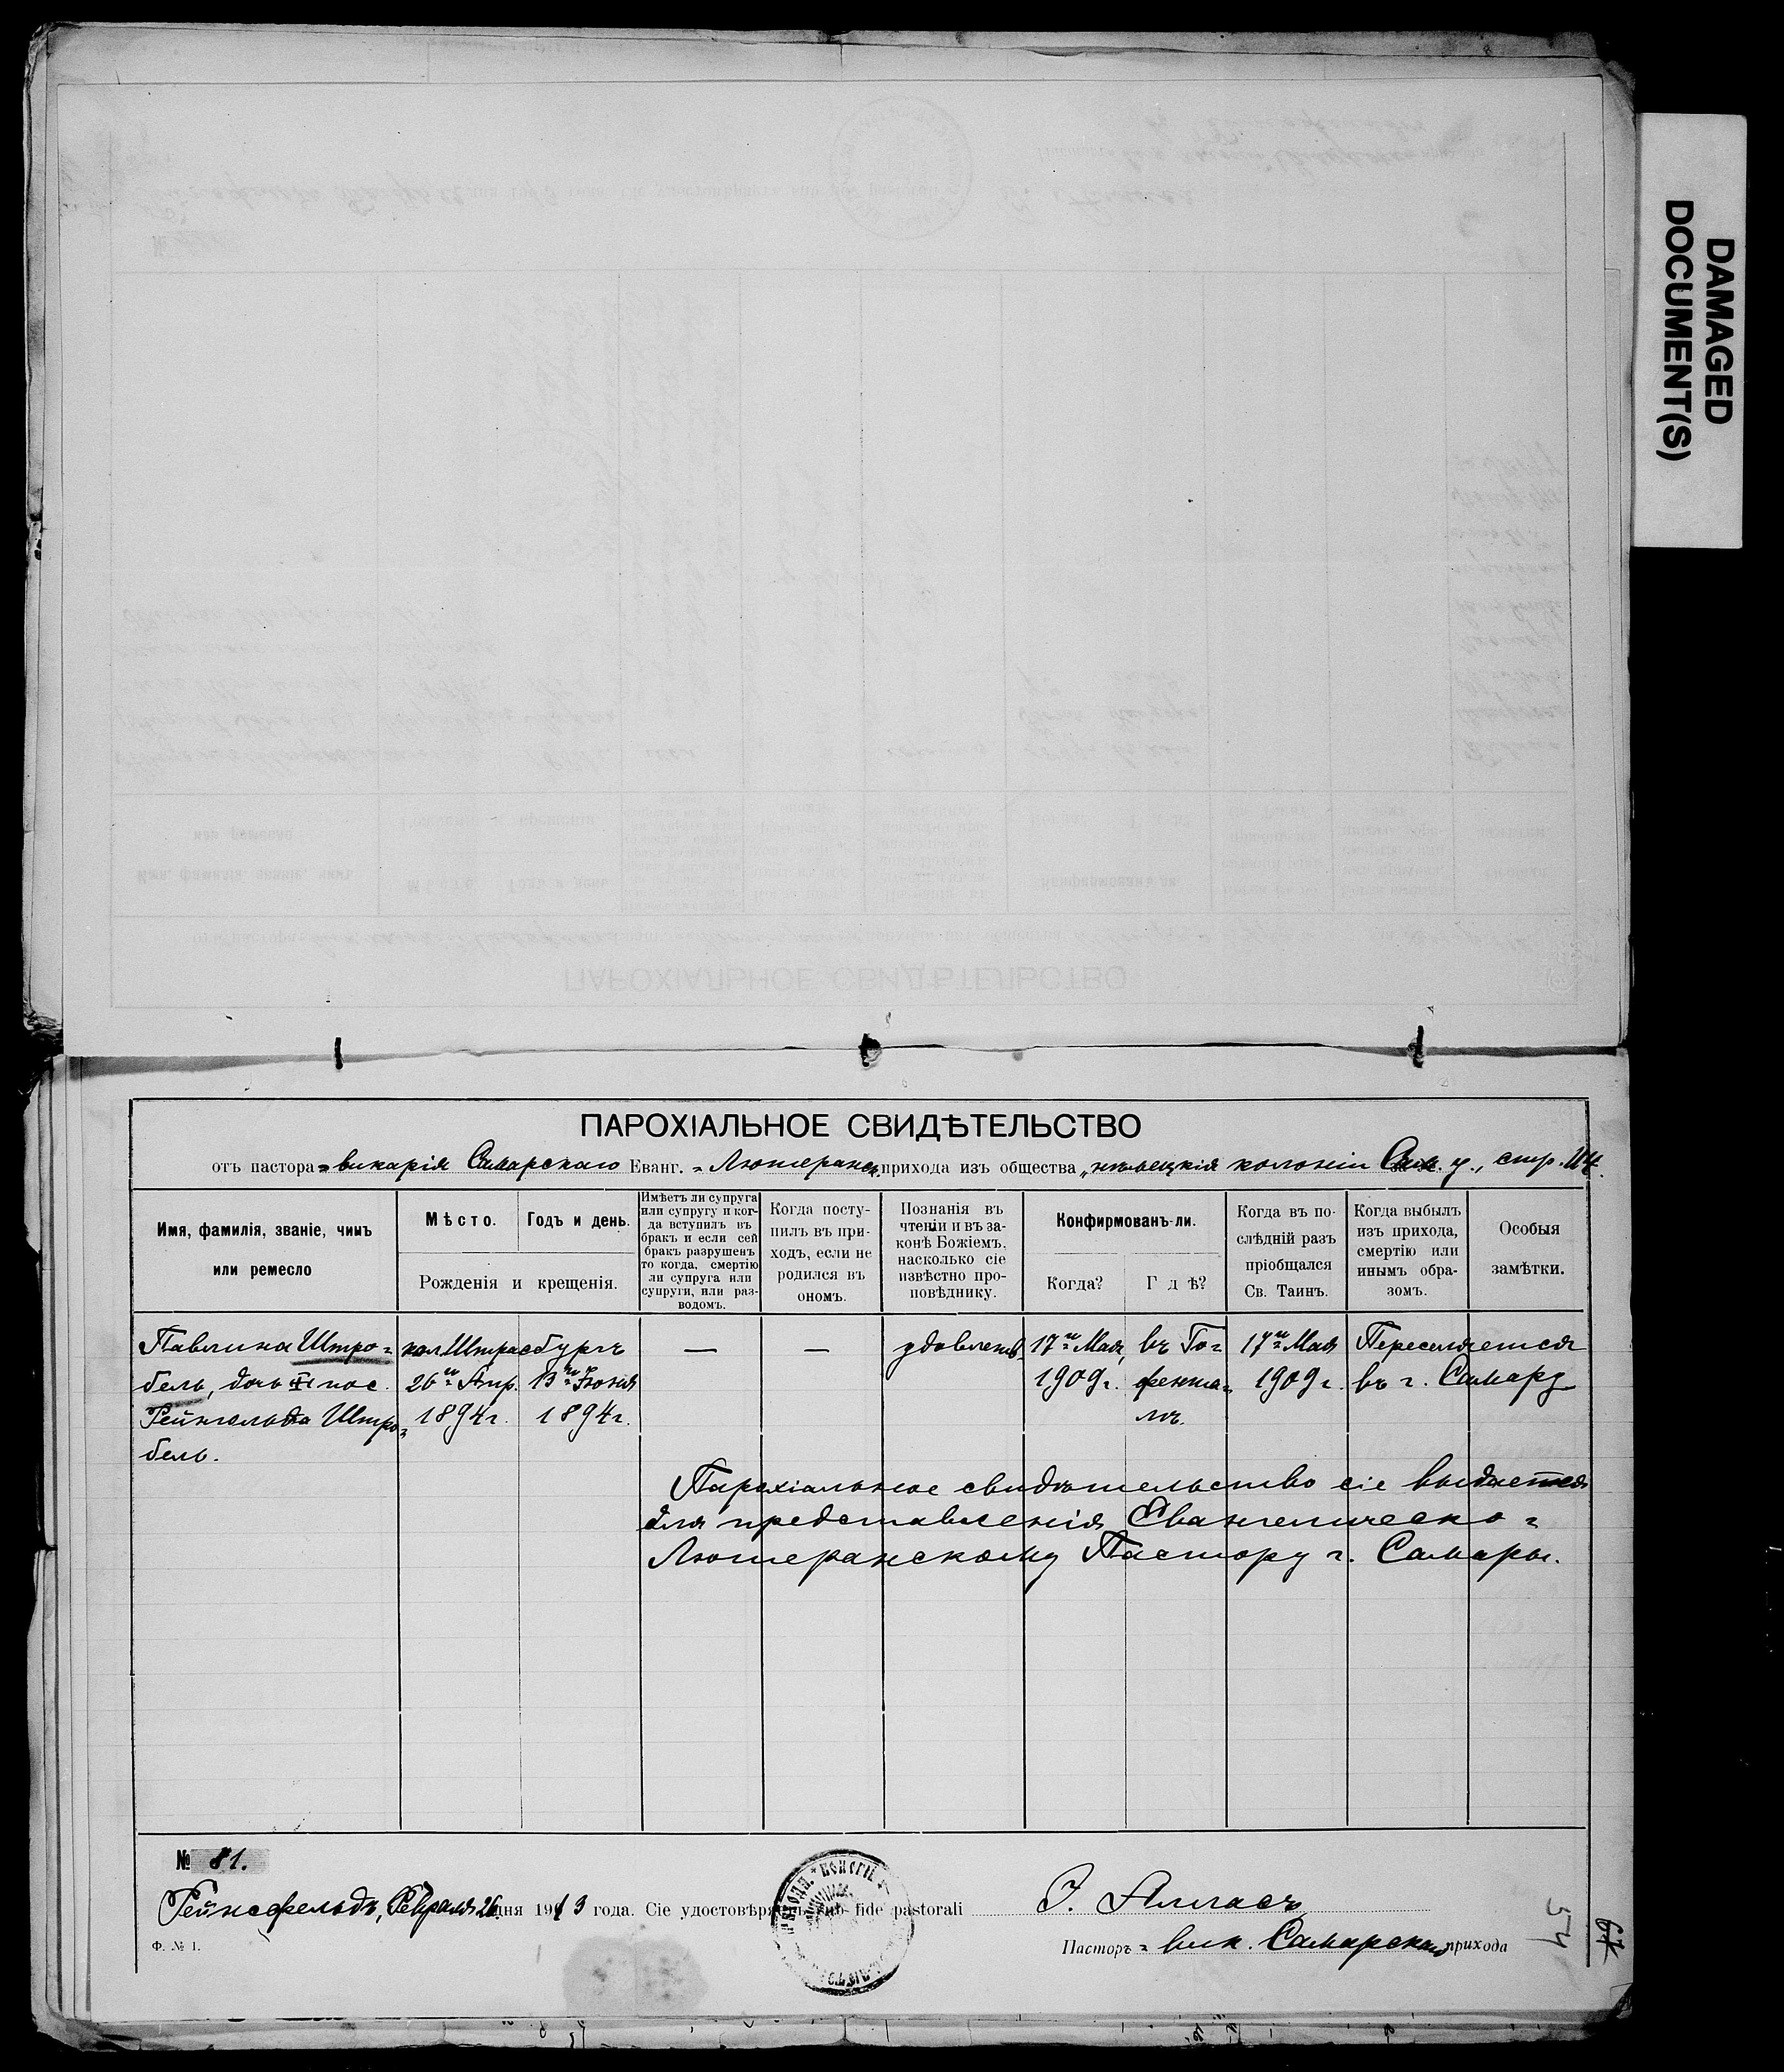 DAMAGED
DOCUMENT(S)
ПАРОХІАЛЬНОЕ СВИДѢТЕЛЬСТВО
отъ пастора-викарія Самарскаго Еванг.-Лютеранск. прихода изъ общества „нѣмецкія колоніи Сам. у., стр.
Имя, фамилія, званіе, чинъ
или ремесло
Мѣсто.
Годъ и день.
Рожденія и крещенія.
Имѣетъ ли супруга
или супругу и ког-
да вступилъ въ
бракъ и если сей
бракъ разрушенъ
то когда, смертію
ли супруга или
супруги, или раз-
водомъ.
Когда посту-
пилъ въ при-
ходъ, если не
родился въ
ономъ.
Познанія въ
чтеніи и въ за-
конѣ Божіемъ,
насколько сіе
извѣстно про-
повѣднику.
Конфирмованъ-ли.
Когда?
Гдѣ?
Когда въ по-
слѣдній разъ
пріобщался
Св. Таинъ.
Когда выбылъ
изъ прихода,
смертію или
инымъ обра-
зомъ.
Особыя
замѣтки.
Павлина Штро-
бель, дочь пос.
Рейнгольда Штро-
бель.
кол. Штрасбургъ
26го Апр.
1894 г.
13го Іюня
1894 г.
—
—
удовлетв.
17го Мая,
1909 г.
въ Го-
фента-
лѣ.
17го Мая
1909 г.
Переселяется
въ г. Самару
Парохіальное свидѣтельство сіе выдается
для представленія Евангелическо-
Лютеранскому Пастору г. Самары.
№ 81.
Рейнсфельдъ, Февраля 26 дня 1913 года. Сіе удостовѣряю sub fide pastorali
Ф. № 1.
Пасторъ-вик. Самарскаго прихода
574